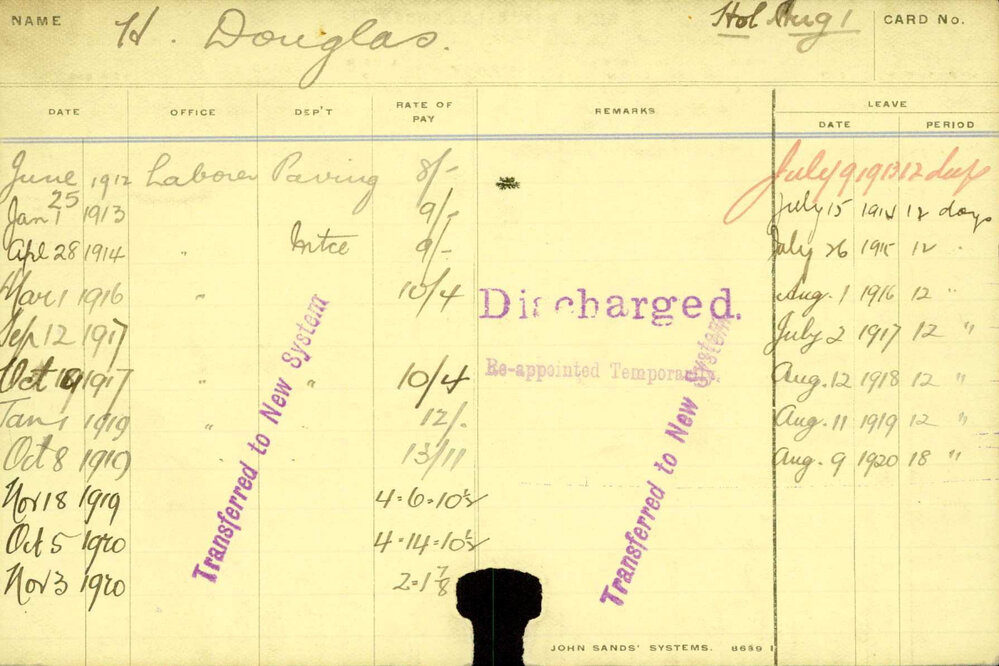 NAME H. Douglas. Hol Aug 1 CARD No.
DATE OFFICE DEP'T RATE OF PAY REMARKS LEAVE
DATE PERIOD
June 25 1912 Laborer Paving 8/- July 9 1913 12 days
Jan 1 1913 9/- July 15 1914 12 days
Apl 28 1914 " Mtce 9/- July 26 1915 12 "
Mar 1 1916 " 10/4 Aug. 1 1916 12 "
Discharged.
Sep 12 1917 July 2 1917 12 "
Re-appointed Temporarily.
Oct 1917 " " 10/4 Aug. 12 1918 12 "
Jan 1 1919 " 12/- Aug. 11 1919 12 "
Oct 8 1919 13/11 Aug. 9 1920 18 "
Nov 18 1919 4=6=10½
Oct 5 1920 4=14=10½
Nov 3 1920 2=1⅞
Transferred to New System
Transferred to New System
JOHN SANDS' SYSTEMS. 8639